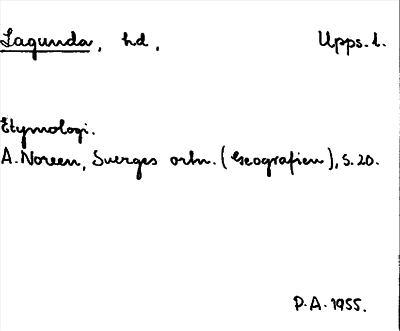 Lagunda, hd, Upps. l.
Etymologi.
A. Noreen, Sverges ortn. (Geografien), s. 20.
P.A. 1955.